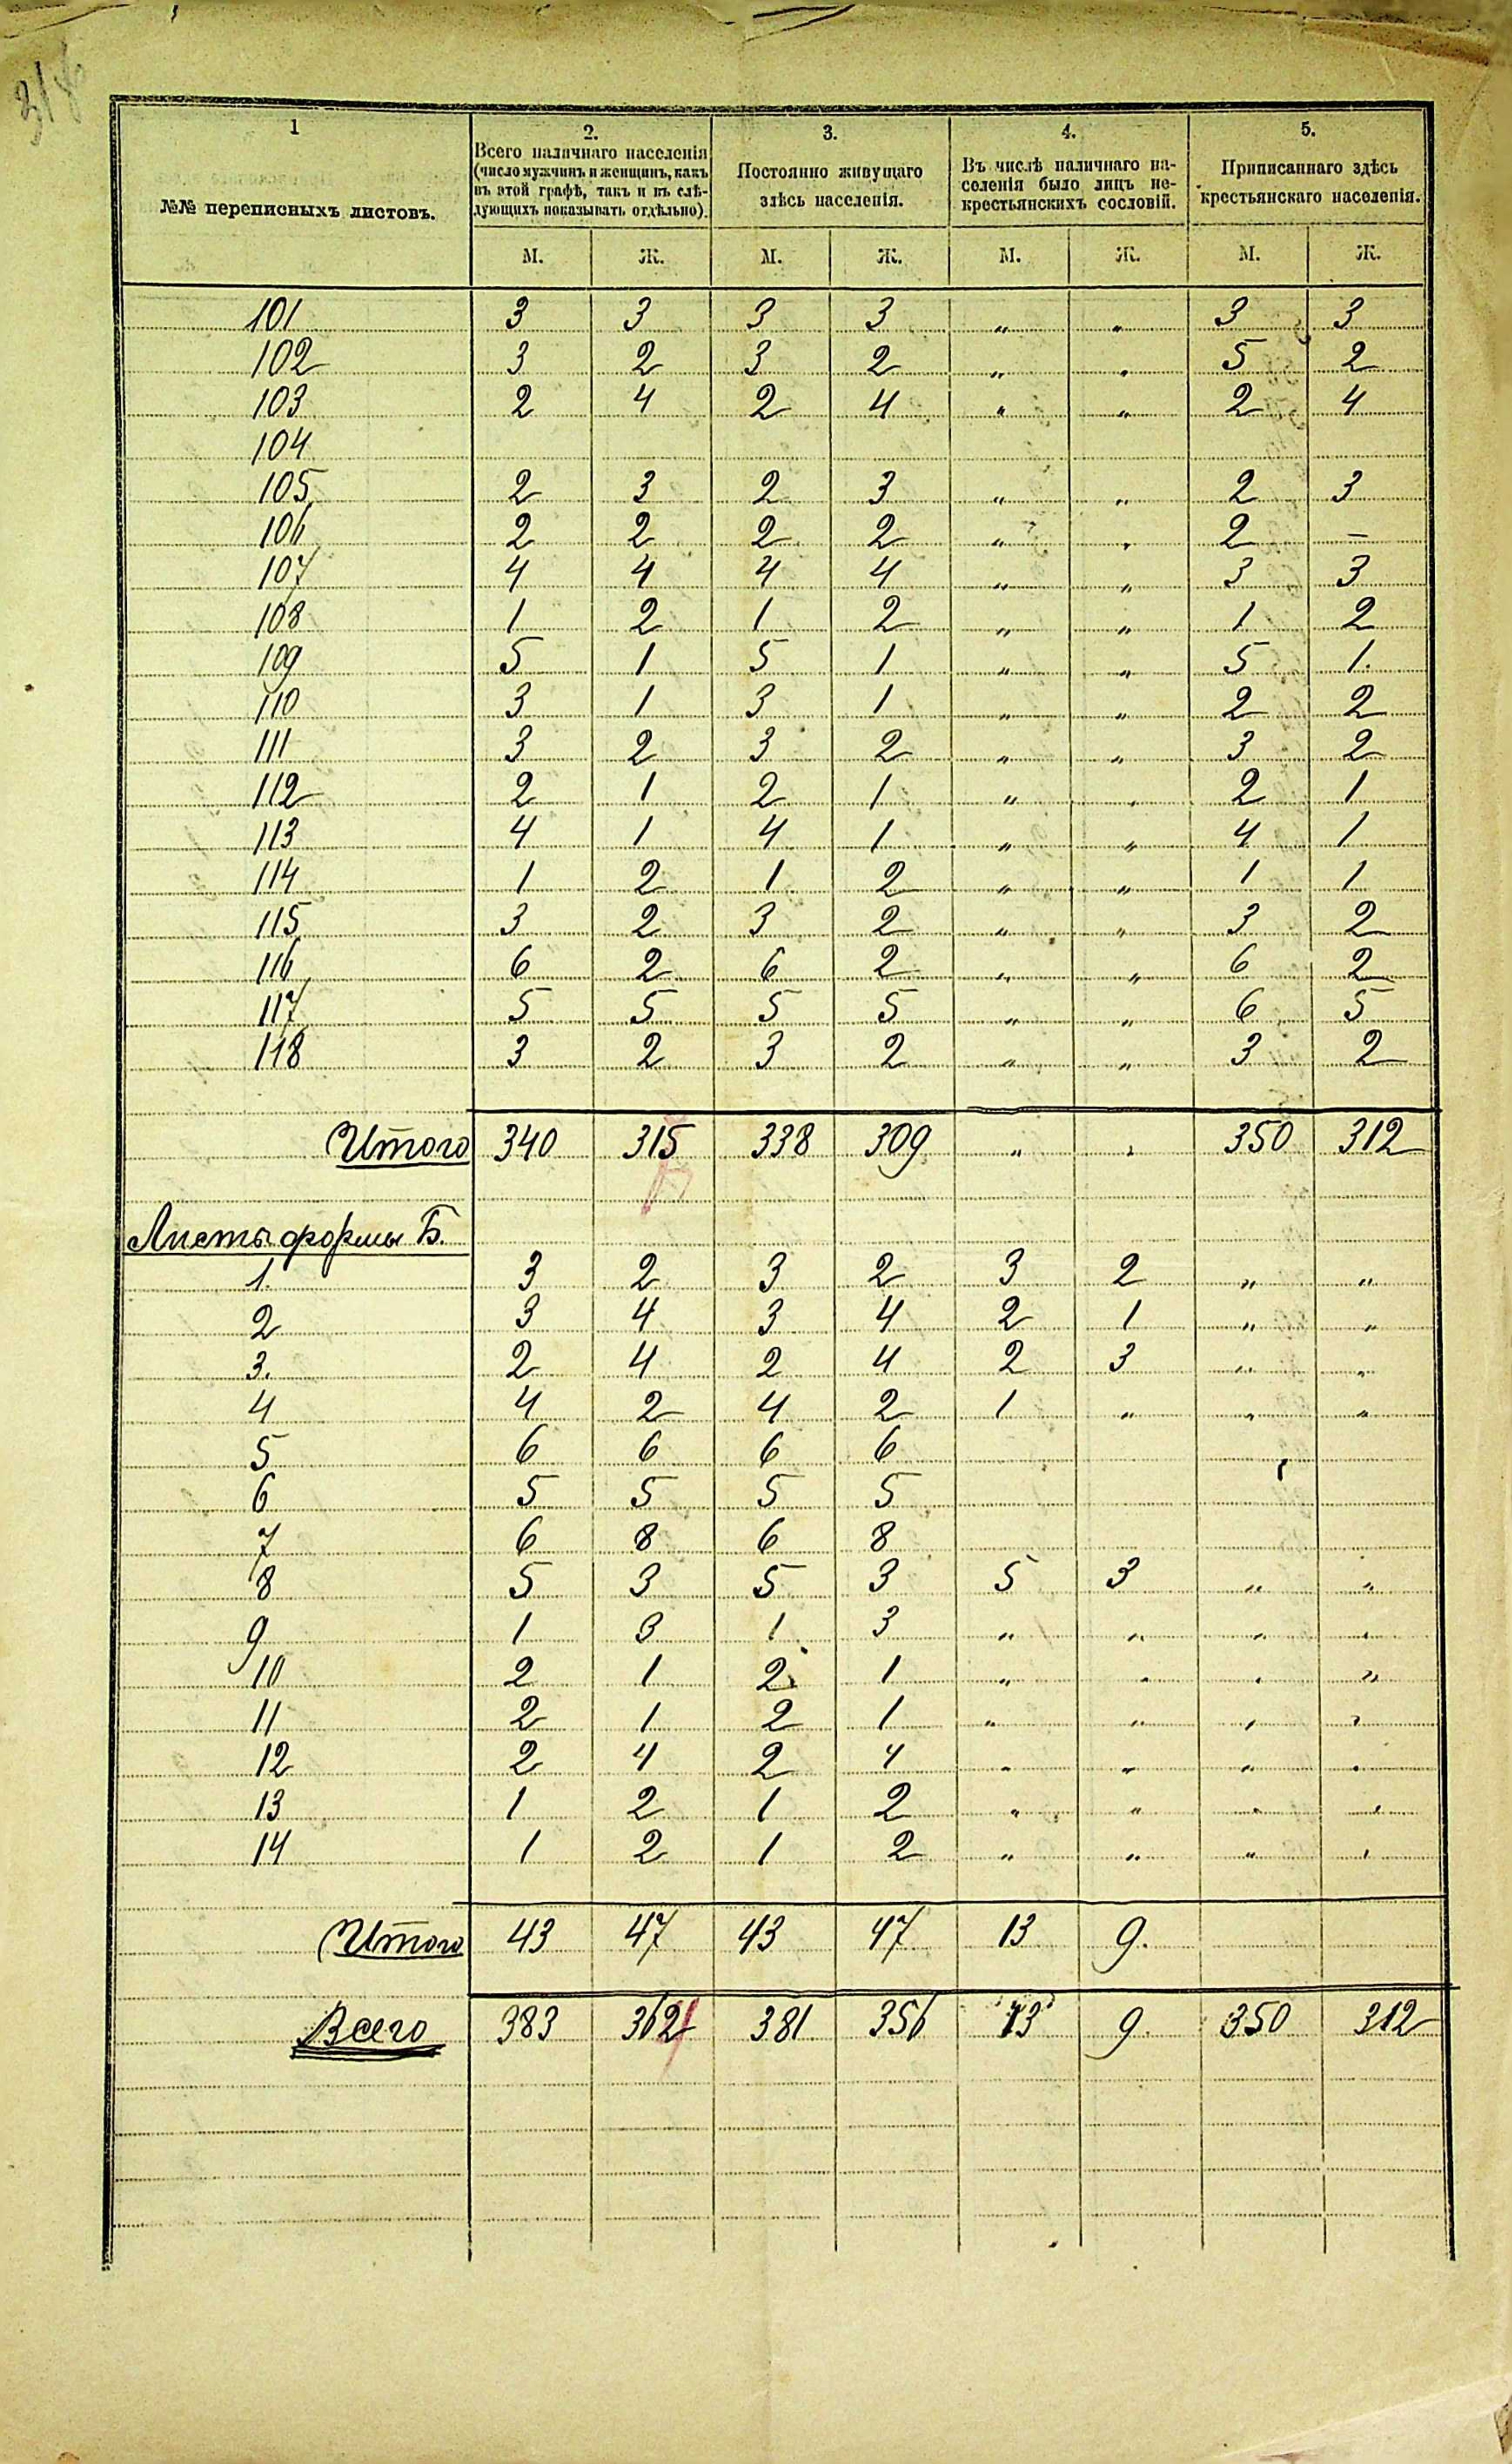 318
1
№№ переписныхъ листовъ.
2.
Всего наличнаго населенія
(число мужчинъ и женщинъ, какъ
въ этой графѣ, такъ и въ слѣ-
дующихъ показывать отдѣльно).
3.
Постоянно живущаго
здѣсь населенія.
4.
Въ числѣ наличнаго на-
селенія было лицъ не-
крестьянскихъ сословій.
5.
Приписаннаго здѣсь
крестьянскаго населенія.
М. Ж. М. Ж. М. Ж. М. Ж.
101 3 3 3 3 „ „ 3 3
102 3 2 3 2 „ „ 5 2
103 2 4 2 4 „ „ 2 4
104
105 2 3 2 3 „ „ 2 3
106 2 2 2 2 „ „ 2 —
107 4 4 4 4 „ „ 3 3
108 1 2 1 2 „ „ 1 2
109 5 1 5 1 „ „ 5 1.
110 3 1 3 1 „ „ 2 2
111 3 2 3 2 „ „ 3 2
112 2 1 2 1 „ „ 2 1
113 4 1 4 1 „ „ 4 1
114 1 2 1 2 „ „ 1 1
115 3 2 3 2 „ „ 3 2
116 6 2 6 2 „ „ 6 2
117 5 5 5 5 „ „ 6 5
118 3 2 3 2 „ „ 3 2
Итого 340 315 338 309 „ „ 350 312
Листы формы Б.
1. 3 2 3 2 3 2 „ „
2 3 4 3 4 2 1 „ „
3. 2 4 2 4 2 3 „ „
4 4 2 4 2 1 „ „ „
5 6 6 6 6
6 5 5 5 5
7 6 8 6 8
8 5 3 5 3 5 3 „ „
9 1 3 1 3 „ „ „ „
10 2 1 2 1 „ „ „ „
11 2 1 2 1 „ „ „ „
12 2 4 2 4 „ „ „ „
13 1 2 1 2 „ „ „ „
14 1 2 1 2 „ „ „ „
Итого 43 47 43 47 13 9.
Всего 383 362 381 356 13 9. 350 312